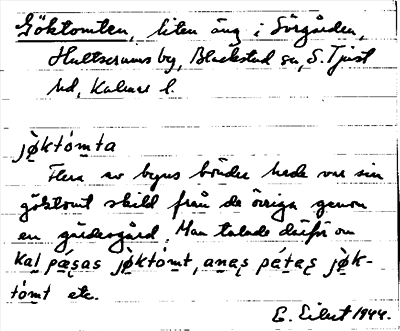 Göktomten, liten äng i Sörgården,
Hultserums by, Blackstad sn, S. Tjust
hd, Kalmar l.
jö̀ktòmta
Flera av byns bönder hade var sin
göktomt skild från de övriga genom
en gärdesgård. Man talade därför om
kal pǽsas jö̀ktòmt, anas pétas jö̀k-
tòmt etc.
E. Eilert 1944.